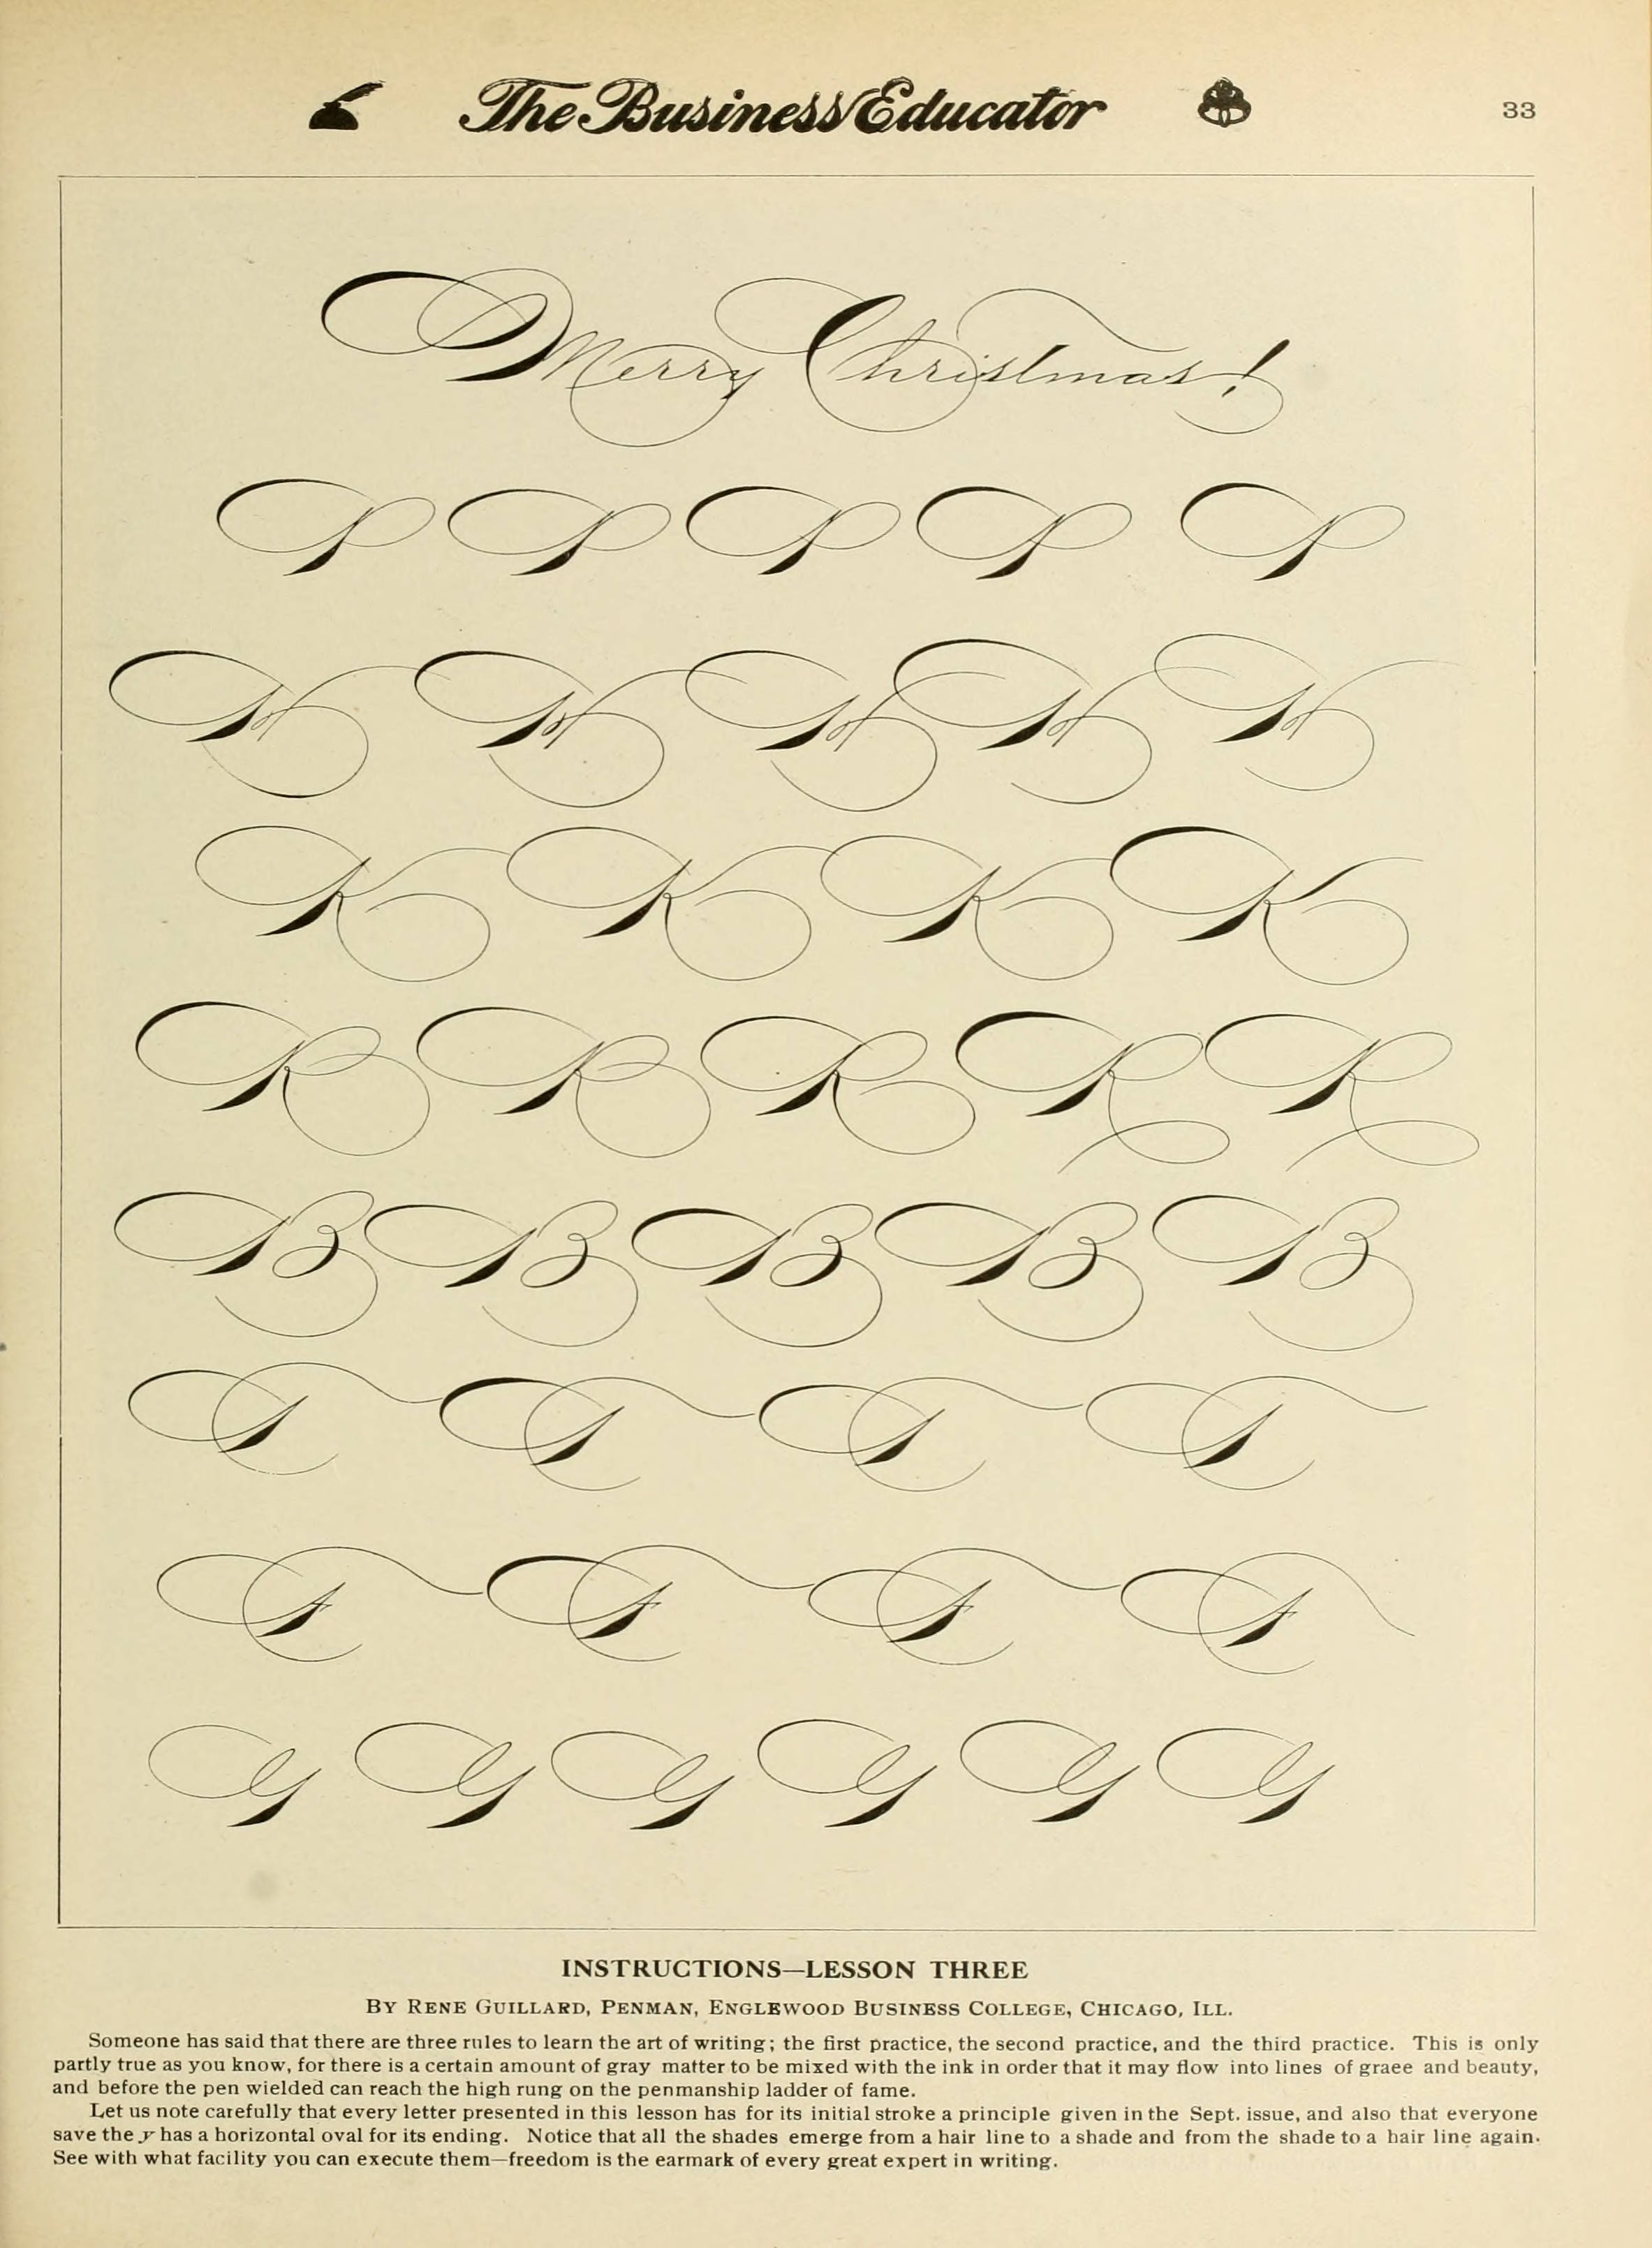 The Business Educator 33
Merry Christmas!
P P P P P
H H H H H
K K K K
R R R R R
B B B B B
T T T T
F F F F
Y Y Y Y Y Y
INSTRUCTIONS—LESSON THREE
BY RENE GUILLARD, PENMAN, ENGLEWOOD BUSINESS COLLEGE, CHICAGO, ILL.
Someone has said that there are three rules to learn the art of writing; the first practice, the second practice, and the third practice. This is only
partly true as you know, for there is a certain amount of gray matter to be mixed with the ink in order that it may flow into lines of graee and beauty,
and before the pen wielded can reach the high rung on the penmanship ladder of fame.
Let us note carefully that every letter presented in this lesson has for its initial stroke a principle given in the Sept. issue, and also that everyone
save the y has a horizontal oval for its ending. Notice that all the shades emerge from a hair line to a shade and from the shade to a hair line again.
See with what facility you can execute them—freedom is the earmark of every great expert in writing.